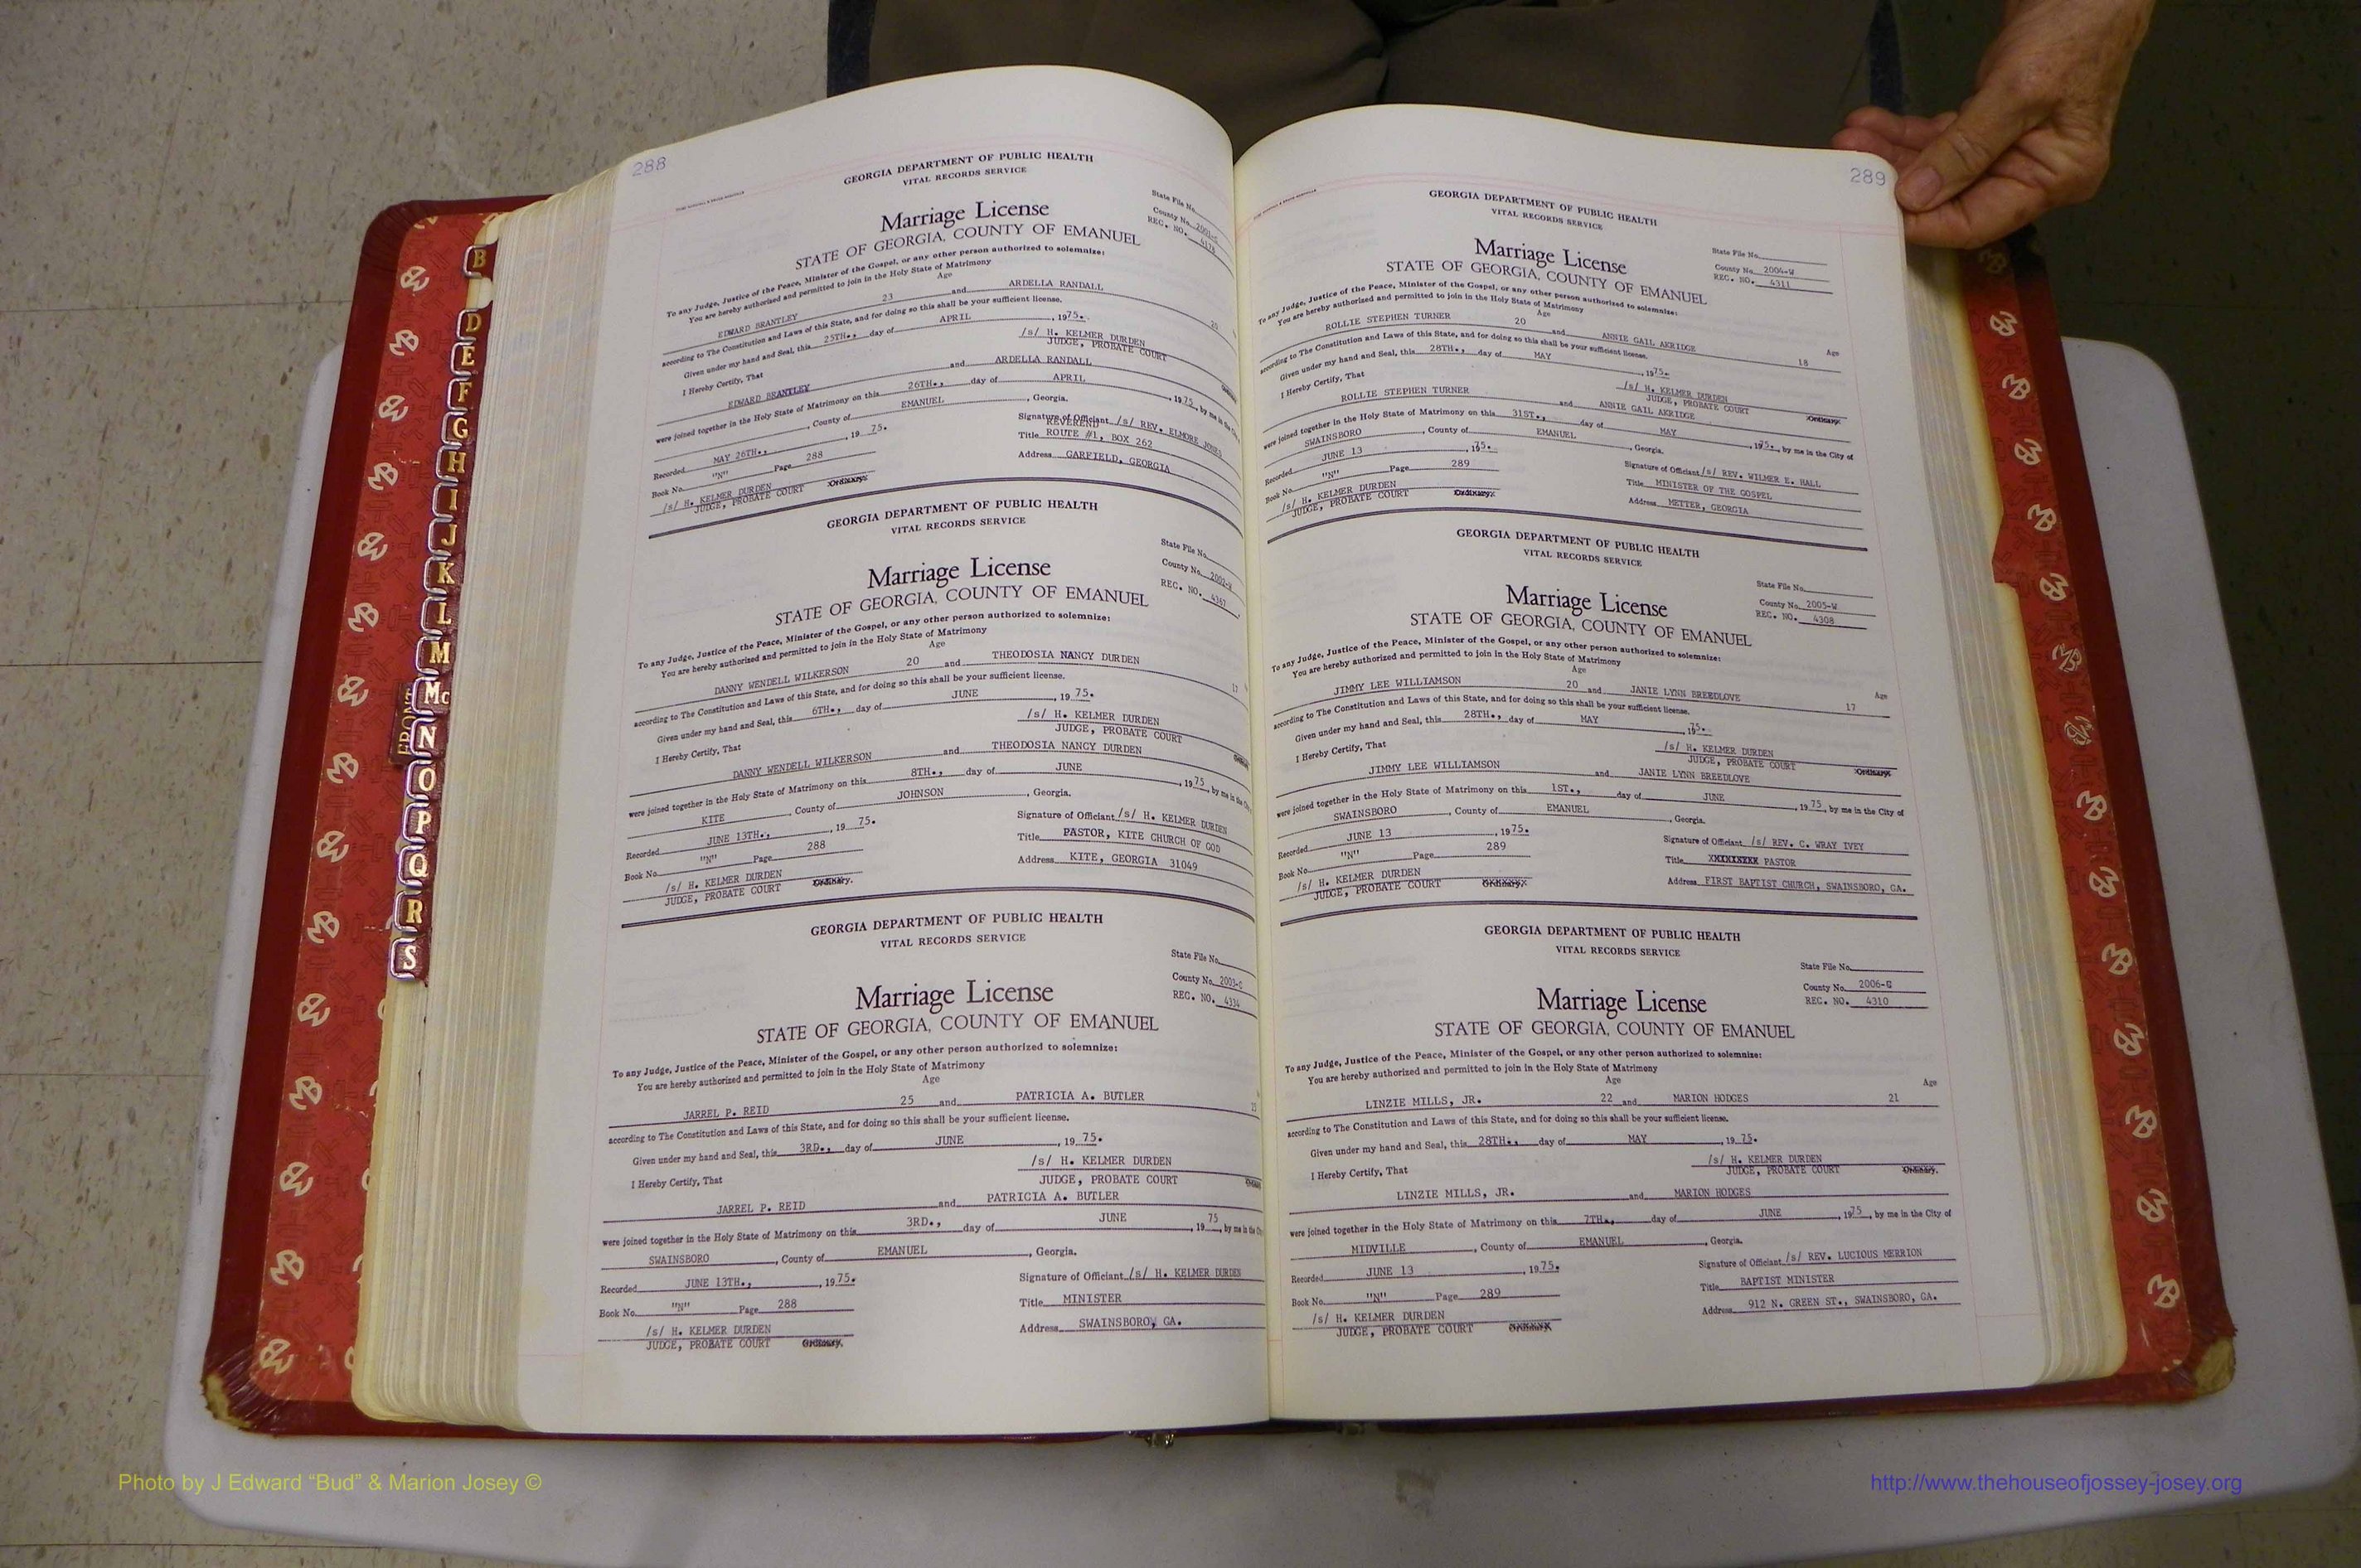 288
GEORGIA DEPARTMENT OF PUBLIC HEALTH
VITAL RECORDS SERVICE
State File No.
County No.
REG. NO.
Marriage License
STATE OF GEORGIA, COUNTY OF EMANUEL
To any Judge, Justice of the Peace, Minister of the Gospel, or any other person authorized to solemnize:
You are hereby authorized and permitted to join in the Holy State of Matrimony
Age
EDWARD BRANTLEY 23 and ARDELLA RANDALL
according to The Constitution and Laws of this State, and for doing so this shall be your sufficient license.
Given under my hand and Seal, this 25TH., day of APRIL , 1975.
/s/ H. KELMER DURDEN
JUDGE, PROBATE COURT
I Hereby Certify, That
EDWARD BRANTLEY and ARDELLA RANDALL
were joined together in the Holy State of Matrimony on this 26TH., day of APRIL , 1975, by me in the
, County of EMANUEL , Georgia.
Recorded MAY 26TH., , 1975.
Signature of Officiant /s/ REV. ELMORE JONES
REVEREND
Book No. "N" Page 288
Title ROUTE #1, BOX 262
/s/ H. KELMER DURDEN
JUDGE, PROBATE COURT Ordinary.
Address GARFIELD, GEORGIA
GEORGIA DEPARTMENT OF PUBLIC HEALTH
VITAL RECORDS SERVICE
State File No.
County No. 2002-W
REG. NO. 4367
Marriage License
STATE OF GEORGIA, COUNTY OF EMANUEL
To any Judge, Justice of the Peace, Minister of the Gospel, or any other person authorized to solemnize:
You are hereby authorized and permitted to join in the Holy State of Matrimony
Age
DANNY WENDELL WILKERSON 20 and THEODOSIA NANCY DURDEN 17
according to The Constitution and Laws of this State, and for doing so this shall be your sufficient license.
Given under my hand and Seal, this 6TH., day of JUNE , 1975.
/s/ H. KELMER DURDEN
JUDGE, PROBATE COURT
I Hereby Certify, That
DANNY WENDELL WILKERSON and THEODOSIA NANCY DURDEN
were joined together in the Holy State of Matrimony on this 8TH., day of JUNE , 1975, by me in the
KITE , County of JOHNSON , Georgia.
Recorded JUNE 13TH., , 1975.
Signature of Officiant /s/ H. KELMER DURDEN
Book No. "N" Page 288
Title PASTOR, KITE CHURCH OF GOD
/s/ H. KELMER DURDEN
JUDGE, PROBATE COURT Ordinary.
Address KITE, GEORGIA 31049
GEORGIA DEPARTMENT OF PUBLIC HEALTH
VITAL RECORDS SERVICE
State File No.
County No. 2003-C
REG. NO. 4334
Marriage License
STATE OF GEORGIA, COUNTY OF EMANUEL
To any Judge, Justice of the Peace, Minister of the Gospel, or any other person authorized to solemnize:
You are hereby authorized and permitted to join in the Holy State of Matrimony
Age
JARREL P. REID 25 and PATRICIA A. BUTLER
according to The Constitution and Laws of this State, and for doing so this shall be your sufficient license.
Given under my hand and Seal, this 3RD., day of JUNE , 1975.
/s/ H. KELMER DURDEN
JUDGE, PROBATE COURT
I Hereby Certify, That
JARREL P. REID and PATRICIA A. BUTLER
were joined together in the Holy State of Matrimony on this 3RD., day of JUNE , 1975, by me in the
SWAINSBORO , County of EMANUEL , Georgia.
Recorded JUNE 13TH., , 1975.
Signature of Officiant /s/ H. KELMER DURDEN
Book No. "N" Page 288
Title MINISTER
/s/ H. KELMER DURDEN
JUDGE, PROBATE COURT Ordinary.
Address SWAINSBORO, GA.
289
GEORGIA DEPARTMENT OF PUBLIC HEALTH
VITAL RECORDS SERVICE
State File No.
County No. 2004-W
REG. NO. 4311
Marriage License
STATE OF GEORGIA, COUNTY OF EMANUEL
To any Judge, Justice of the Peace, Minister of the Gospel, or any other person authorized to solemnize:
You are hereby authorized and permitted to join in the Holy State of Matrimony
Age Age
ROLLIE STEPHEN TURNER 20 and ANNIE GAIL AKRIDGE 18
according to The Constitution and Laws of this State, and for doing so this shall be your sufficient license.
Given under my hand and Seal, this 28TH., day of MAY , 1975.
/s/ H. KELMER DURDEN
JUDGE, PROBATE COURT Ordinary.
I Hereby Certify, That
ROLLIE STEPHEN TURNER and ANNIE GAIL AKRIDGE
were joined together in the Holy State of Matrimony on this 31ST., day of MAY , 1975., by me in the City of
SWAINSBORO , County of EMANUEL , Georgia.
Recorded JUNE 13 , 1975.
Signature of Officiant /s/ REV. WILMER E. HALL
Book No. "N" Page 289
Title MINISTER OF THE GOSPEL
/s/ H. KELMER DURDEN
JUDGE, PROBATE COURT Ordinary.
Address METTER, GEORGIA
GEORGIA DEPARTMENT OF PUBLIC HEALTH
VITAL RECORDS SERVICE
State File No.
County No. 2005-W
REG. NO. 4308
Marriage License
STATE OF GEORGIA, COUNTY OF EMANUEL
To any Judge, Justice of the Peace, Minister of the Gospel, or any other person authorized to solemnize:
You are hereby authorized and permitted to join in the Holy State of Matrimony
Age Age
JIMMY LEE WILLIAMSON 20 and JANIE LYNN BREEDLOVE 17
according to The Constitution and Laws of this State, and for doing so this shall be your sufficient license.
Given under my hand and Seal, this 28TH., day of MAY , 1975.
/s/ H. KELMER DURDEN
JUDGE, PROBATE COURT Ordinary.
I Hereby Certify, That
JIMMY LEE WILLIAMSON and JANIE LYNN BREEDLOVE
were joined together in the Holy State of Matrimony on this 1ST., day of JUNE , 1975, by me in the City of
SWAINSBORO , County of EMANUEL , Georgia.
Recorded JUNE 13 , 1975.
Signature of Officiant /s/ REV. C. WRAY IVEY
Book No. "N" Page 289
Title PASTOR
/s/ H. KELMER DURDEN
JUDGE, PROBATE COURT Ordinary.
Address FIRST BAPTIST CHURCH, SWAINSBORO, GA.
GEORGIA DEPARTMENT OF PUBLIC HEALTH
VITAL RECORDS SERVICE
State File No.
County No. 2006-C
REG. NO. 4310
Marriage License
STATE OF GEORGIA, COUNTY OF EMANUEL
To any Judge, Justice of the Peace, Minister of the Gospel, or any other person authorized to solemnize:
You are hereby authorized and permitted to join in the Holy State of Matrimony
Age Age
LINZIE MILLS, JR. 22 and MARION HODGES 21
according to The Constitution and Laws of this State, and for doing so this shall be your sufficient license.
Given under my hand and Seal, this 28TH., day of MAY , 1975.
/s/ H. KELMER DURDEN
JUDGE, PROBATE COURT Ordinary.
I Hereby Certify, That
LINZIE MILLS, JR. and MARION HODGES
were joined together in the Holy State of Matrimony on this 7TH., day of JUNE , 1975, by me in the City of
MIDVILLE , County of EMANUEL , Georgia.
Recorded JUNE 13 , 1975.
Signature of Officiant /s/ REV. LUCIOUS MERRION
Book No. "N" Page 289
Title BAPTIST MINISTER
/s/ H. KELMER DURDEN
JUDGE, PROBATE COURT Ordinary.
Address 912 N. GREEN ST., SWAINSBORO, GA.
B
D
E
F
G
H
I
J
K
L
M
Mc
N
O
P
Q
R
S
Photo by J Edward “Bud” & Marion Josey ©
http://www.thehouseofjossey-josey.org